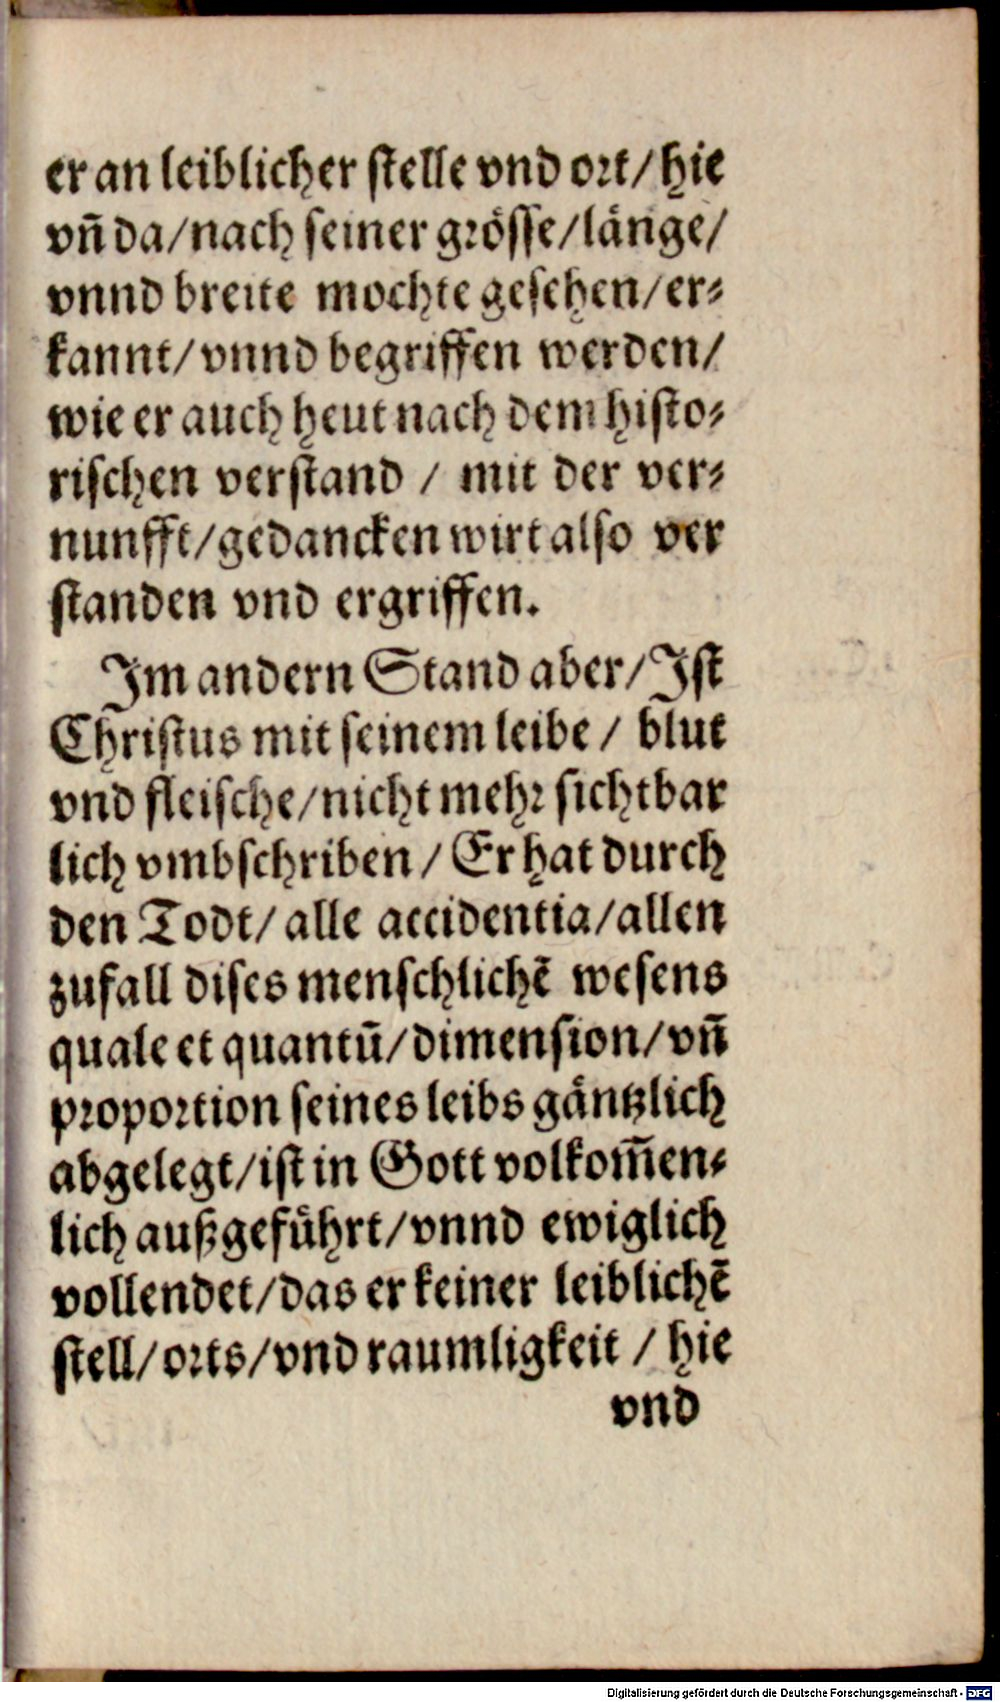 er an leiblicher stelle vnd ort/ hie
vn̄ da/nach seiner grösse/länge/
vnnd breite mochte gesehen/er⸗
kannt/vnnd begriffen werden/
wie er auch heut nach dem histo⸗
rischen verstand / mit der ver⸗
nunfft/gedancken wirt also ver
standen vnd ergriffen.
Im andern Stand aber/Ist
Christus mit seinem leibe / blut
vnd fleische/nicht mehr sichtbar
lich vmbschriben/ Er hat durch
den Todt/ alle accidentia/allen
zufall dises menschlichē wesens
quale et quantū/dimension/vn̄
proportion seines leibs gäntzlich
abgelegt/ist in Gott volkom̄en⸗
lich außgeführt/vnnd ewiglich
vollendet/das er keiner leiblichē
stell/orts/vnd raumligkeit / hie
vnd
Digitalisierung gefördert durch die Deutsche Forschungsgemeinschaft - DFG